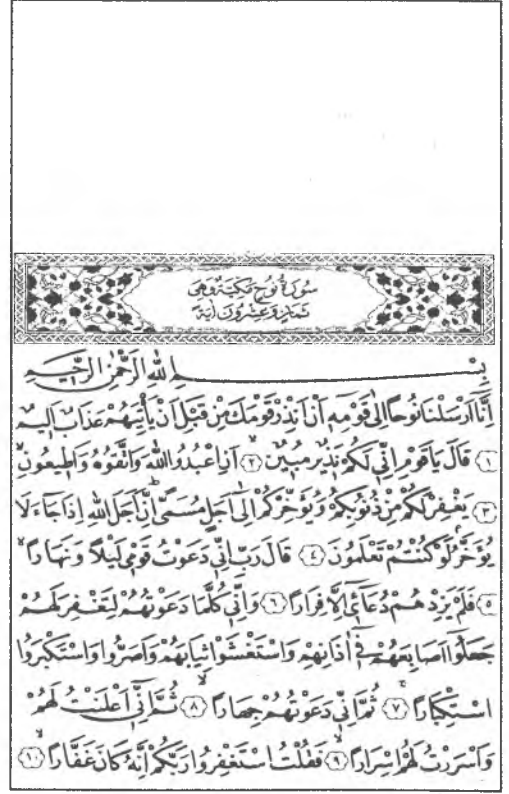 سُورَةُ نُوحٍ مَكِّيَّةٌ وَهِيَ
ثَمَانٍ وَعِشْرُونَ اٰيَةً
بِسْمِ اللّٰهِ الرَّحْمٰنِ الرَّحِيمِ
اِنَّٓا اَرْسَلْنَا نُوحًا اِلٰى قَوْمِهٖٓ اَنْ اَنْذِرْ قَوْمَكَ مِنْ قَبْلِ اَنْ يَأْتِيَهُمْ عَذَابٌ اَلِيمٌ
﴿١﴾ قَالَ يَا قَوْمِ اِنِّي لَكُمْ نَذِيرٌ مُبِينٌ ﴿٢﴾ اَنِ اعْبُدُوا اللّٰهَ وَاتَّقُوهُ وَاَطِيعُونِ
﴿٣﴾ يَغْفِرْ لَكُمْ مِنْ ذُنُوبِكُمْ وَيُؤَخِّرْكُمْ اِلٰٓى اَجَلٍ مُسَمًّى اِنَّ اَجَلَ اللّٰهِ اِذَا جَٓاءَ لَا
يُؤَخَّرُ لَوْ كُنْتُمْ تَعْلَمُونَ ﴿٤﴾ قَالَ رَبِّ اِنِّي دَعَوْتُ قَوْمِي لَيْلًا وَنَهَارًا
﴿٥﴾ فَلَمْ يَزِدْهُمْ دُعَٓائِٓي اِلَّا فِرَارًا ﴿٦﴾ وَاِنِّي كُلَّمَا دَعَوْتُهُمْ لِتَغْفِرَ لَهُمْ
جَعَلُٓوا اَصَابِعَهُمْ فِٓي اٰذَانِهِمْ وَاسْتَغْشَوْا ثِيَابَهُمْ وَاَصَرُّوا وَاسْتَكْبَرُوا
اسْتِكْبَارًا ﴿٧﴾ ثُمَّ اِنِّي دَعَوْتُهُمْ جِهَارًا ﴿٨﴾ ثُمَّ اِنِّٓي اَعْلَنْتُ لَهُمْ
وَاَسْرَرْتُ لَهُمْ اِسْرَارًا ﴿٩﴾ فَقُلْتُ اسْتَغْفِرُوا رَبَّكُمْ اِنَّهُ كَانَ غَفَّارًا ﴿١٠﴾